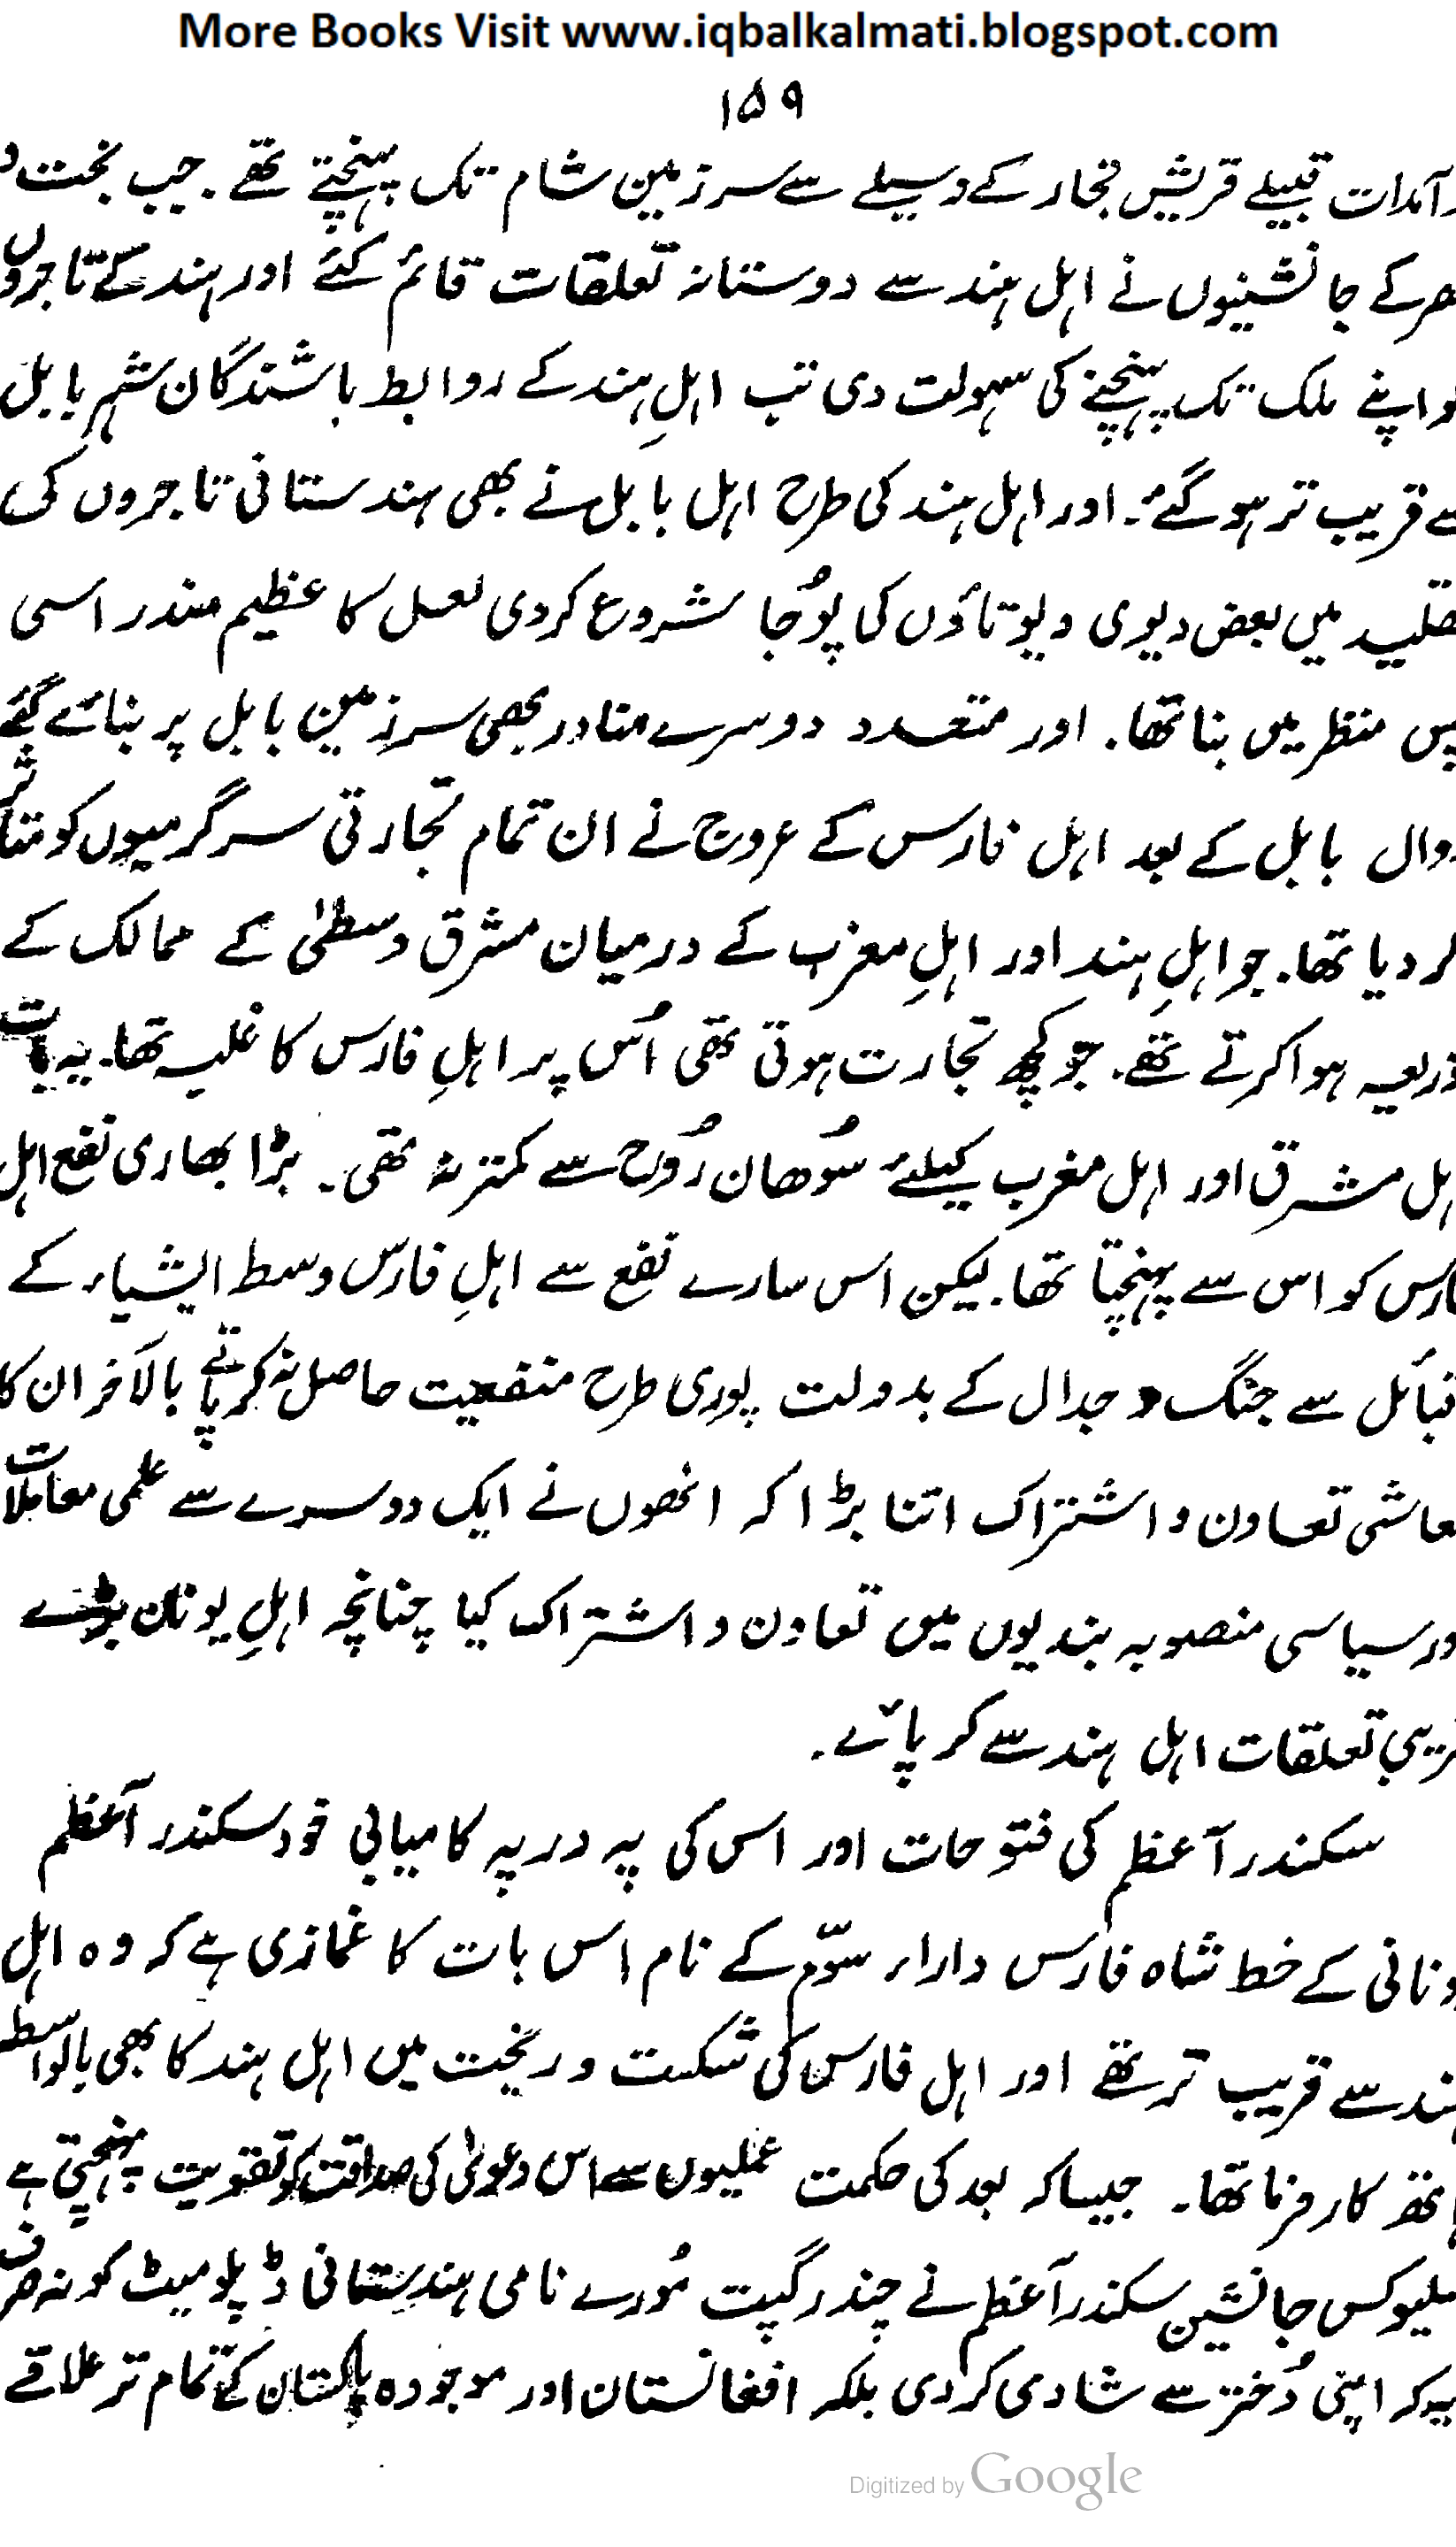 More Books Visit www.iqbalkalmati.blogspot.com
۱۵۹
رآمدات قبیلے قریش تجار کے وسیلے سے سرزمین شام تک پہنچتے تھے۔ جب بخت و
ھر کے جانشینوں نے اہل ہند سے دوستانہ تعلقات قائم کئے اور ہند کے تاجروں
و اپنے ملک تک پہنچنے کی سہولت دی تب اہلِ ہند کے روابط باشندگان شہر بابل
سے قریب تر ہو گئے۔ اور اہل ہند کی طرح اہل بابل نے بھی ہندستانی تاجروں کی
قلید میں بعض دیوی دیوتاؤں کی پُوجا شروع کر دی لعل کا عظیم مندر اسی
پس منظر میں بنا تھا۔ اور متعدد دوسرے منادر بھی سرزمین بابل پر بنائے گئے
وال بابل کے بعد اہل فارس کے عروج نے ان تمام تجارتی سرگرمیوں کو متاثر
کر دیا تھا۔ جو اہلِ ہند اور اہلِ مغرب کے درمیان مشرق وسطیٰ کے ممالک کے
ذریعہ ہوا کرتے تھے۔ جو کچھ تجارت ہوتی تھی اُس پر اہلِ فارس کا غلبہ تھا۔ یہ بات
ہل مشرق اور اہل مغرب کیلئے سُوھان رُوح سے کمتر نہ تھی۔ بڑا بھاری نفع اہل
ارس کو اس سے پہنچتا تھا۔ لیکن اس سارے نفع سے اہلِ فارس وسط ایشیاء کے
قبائل سے جنگ و جدال کے بدولت پوری طرح منفعیت حاصل نہ کر پاتے بالآخر ان کا
عاشی تعاون و اشتراک اتنا بڑا کہ انھوں نے ایک دوسرے سے علمی معاملات
ور سیاسی منصوبہ بندیوں میں تعاون و اشتراک کیا چنانچہ اہلِ یونان بڑے
ریبی تعلقات اہل ہند سے کر پائے۔
سکندر آعظم کی فتوحات اور اس کی پہ در پہ کامیابی خود سکندر آعظم
ونانی کے خط شاہ فارس داراء سوّم کے نام اس بات کا غمازی ہے کہ وہ اہل
ہند سے قریب تر تھے اور اہل فارس کی شکست و ریخت میں اہل ہند کا بھی بالواسطہ
اتھ کارفرما تھا۔ جیسا کہ بعد کی حکمت عملیوں سے اس دعویٰ کی صداقت کو تقویت پہنچتی ہے
سلیوکس جانشین سکندر آعظم نے چندر گپت مُورے نامی ہندستانی ڈپلومیٹ کو نہ صرف
یہ کہ اپنی دُختر سے شادی کر دی بلکہ افغانستان اور موجودہ پاکستان کے تمام تر علاقے
Digitized by Google